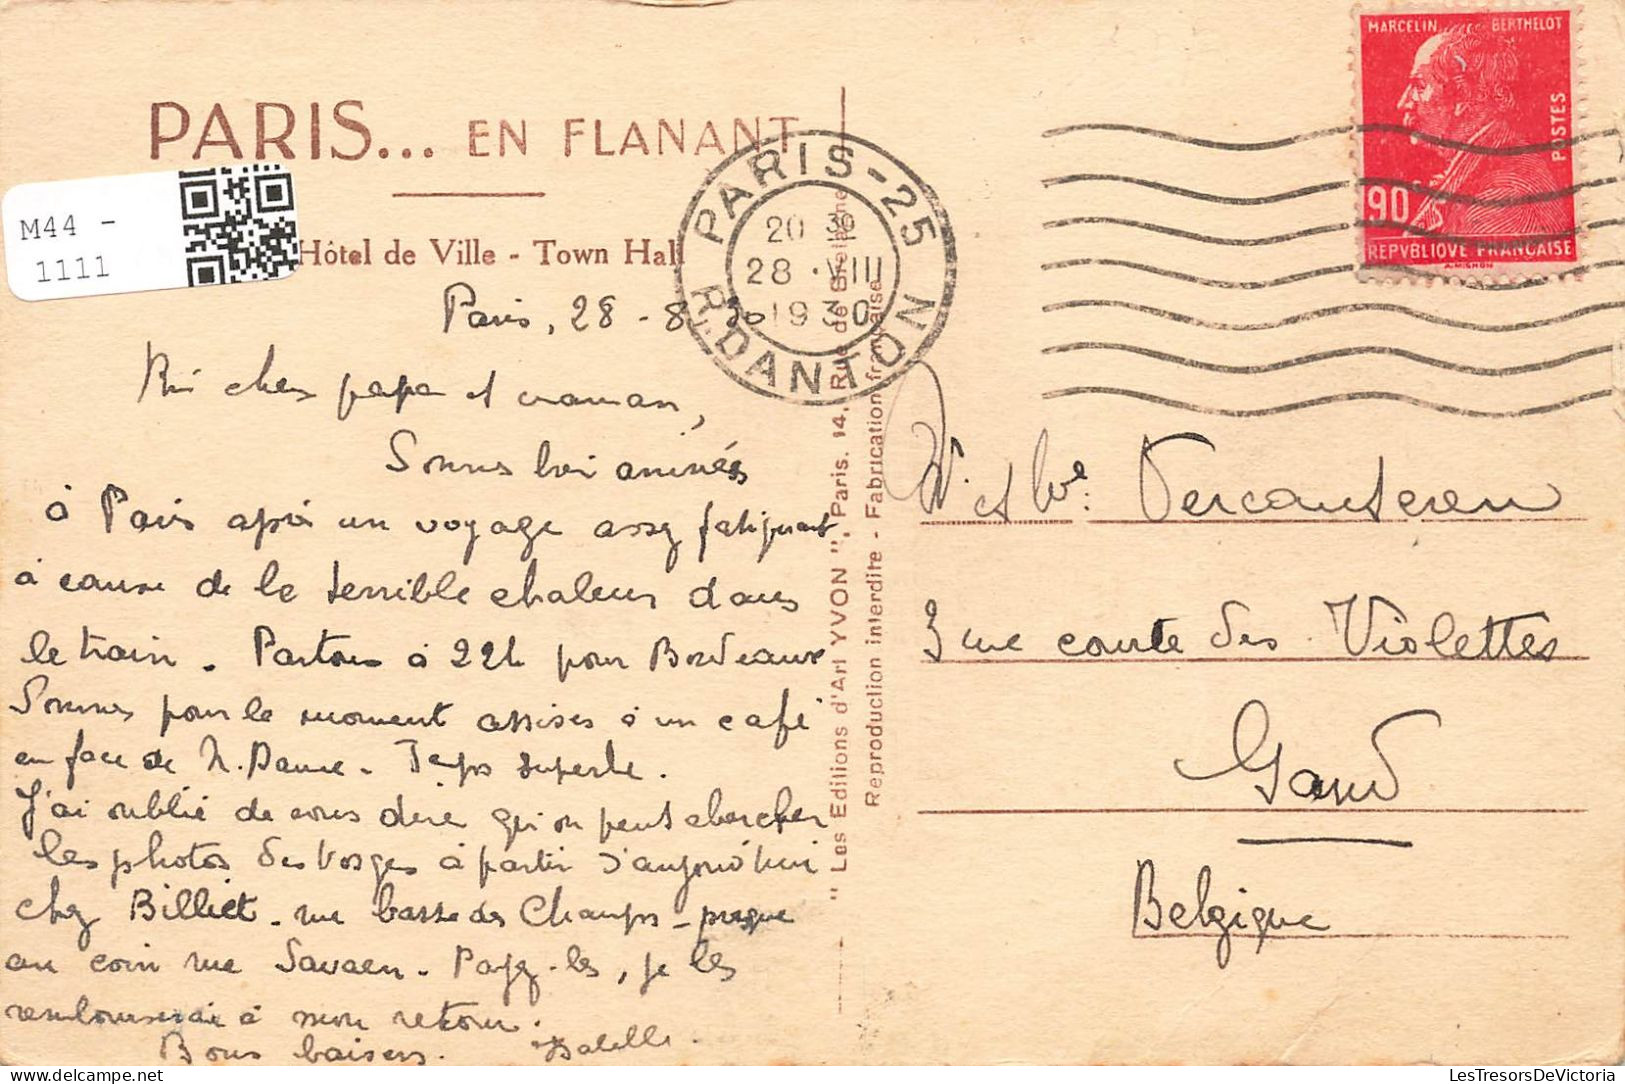 PARIS... EN FLANANT
M44 -
1111
Hôtel de Ville - Town Hall
Paris, 28 - 8 30
chers papa et maman,
Sommes arrivées
à Paris après un voyage assez fatiguant
à cause de la terrible chaleur dans
le train. Partons à 22h pour Bordeaux
Sommes pour le moment assises à un café
en face de N. Dame. Temps superbe.
J'ai oublié de vous dire qu'on peut chercher
les photos des Vosges à partir d'aujourd'hui
chez Billiet. rue basse des Champs - presque
au coin rue Savaen. Payez-les, je les
rembourserai à mon retour.
Bons baisers. Isabelle.
" Les Editions d'Art YVON ", Paris. 14, Rue de Bretagne
Reproduction interdite - Fabrication française
PARIS-25
R. DANTON
20 30
28 ·VIII
1930
MARCELIN BERTHELOT
POSTES
90c
REPVBLIQVE FRANÇAISE
A. MIGNON
Mr et Mme Vercauteren
3 rue courte des Violettes
Gand
Belgique
LesTresorsDeVictoria